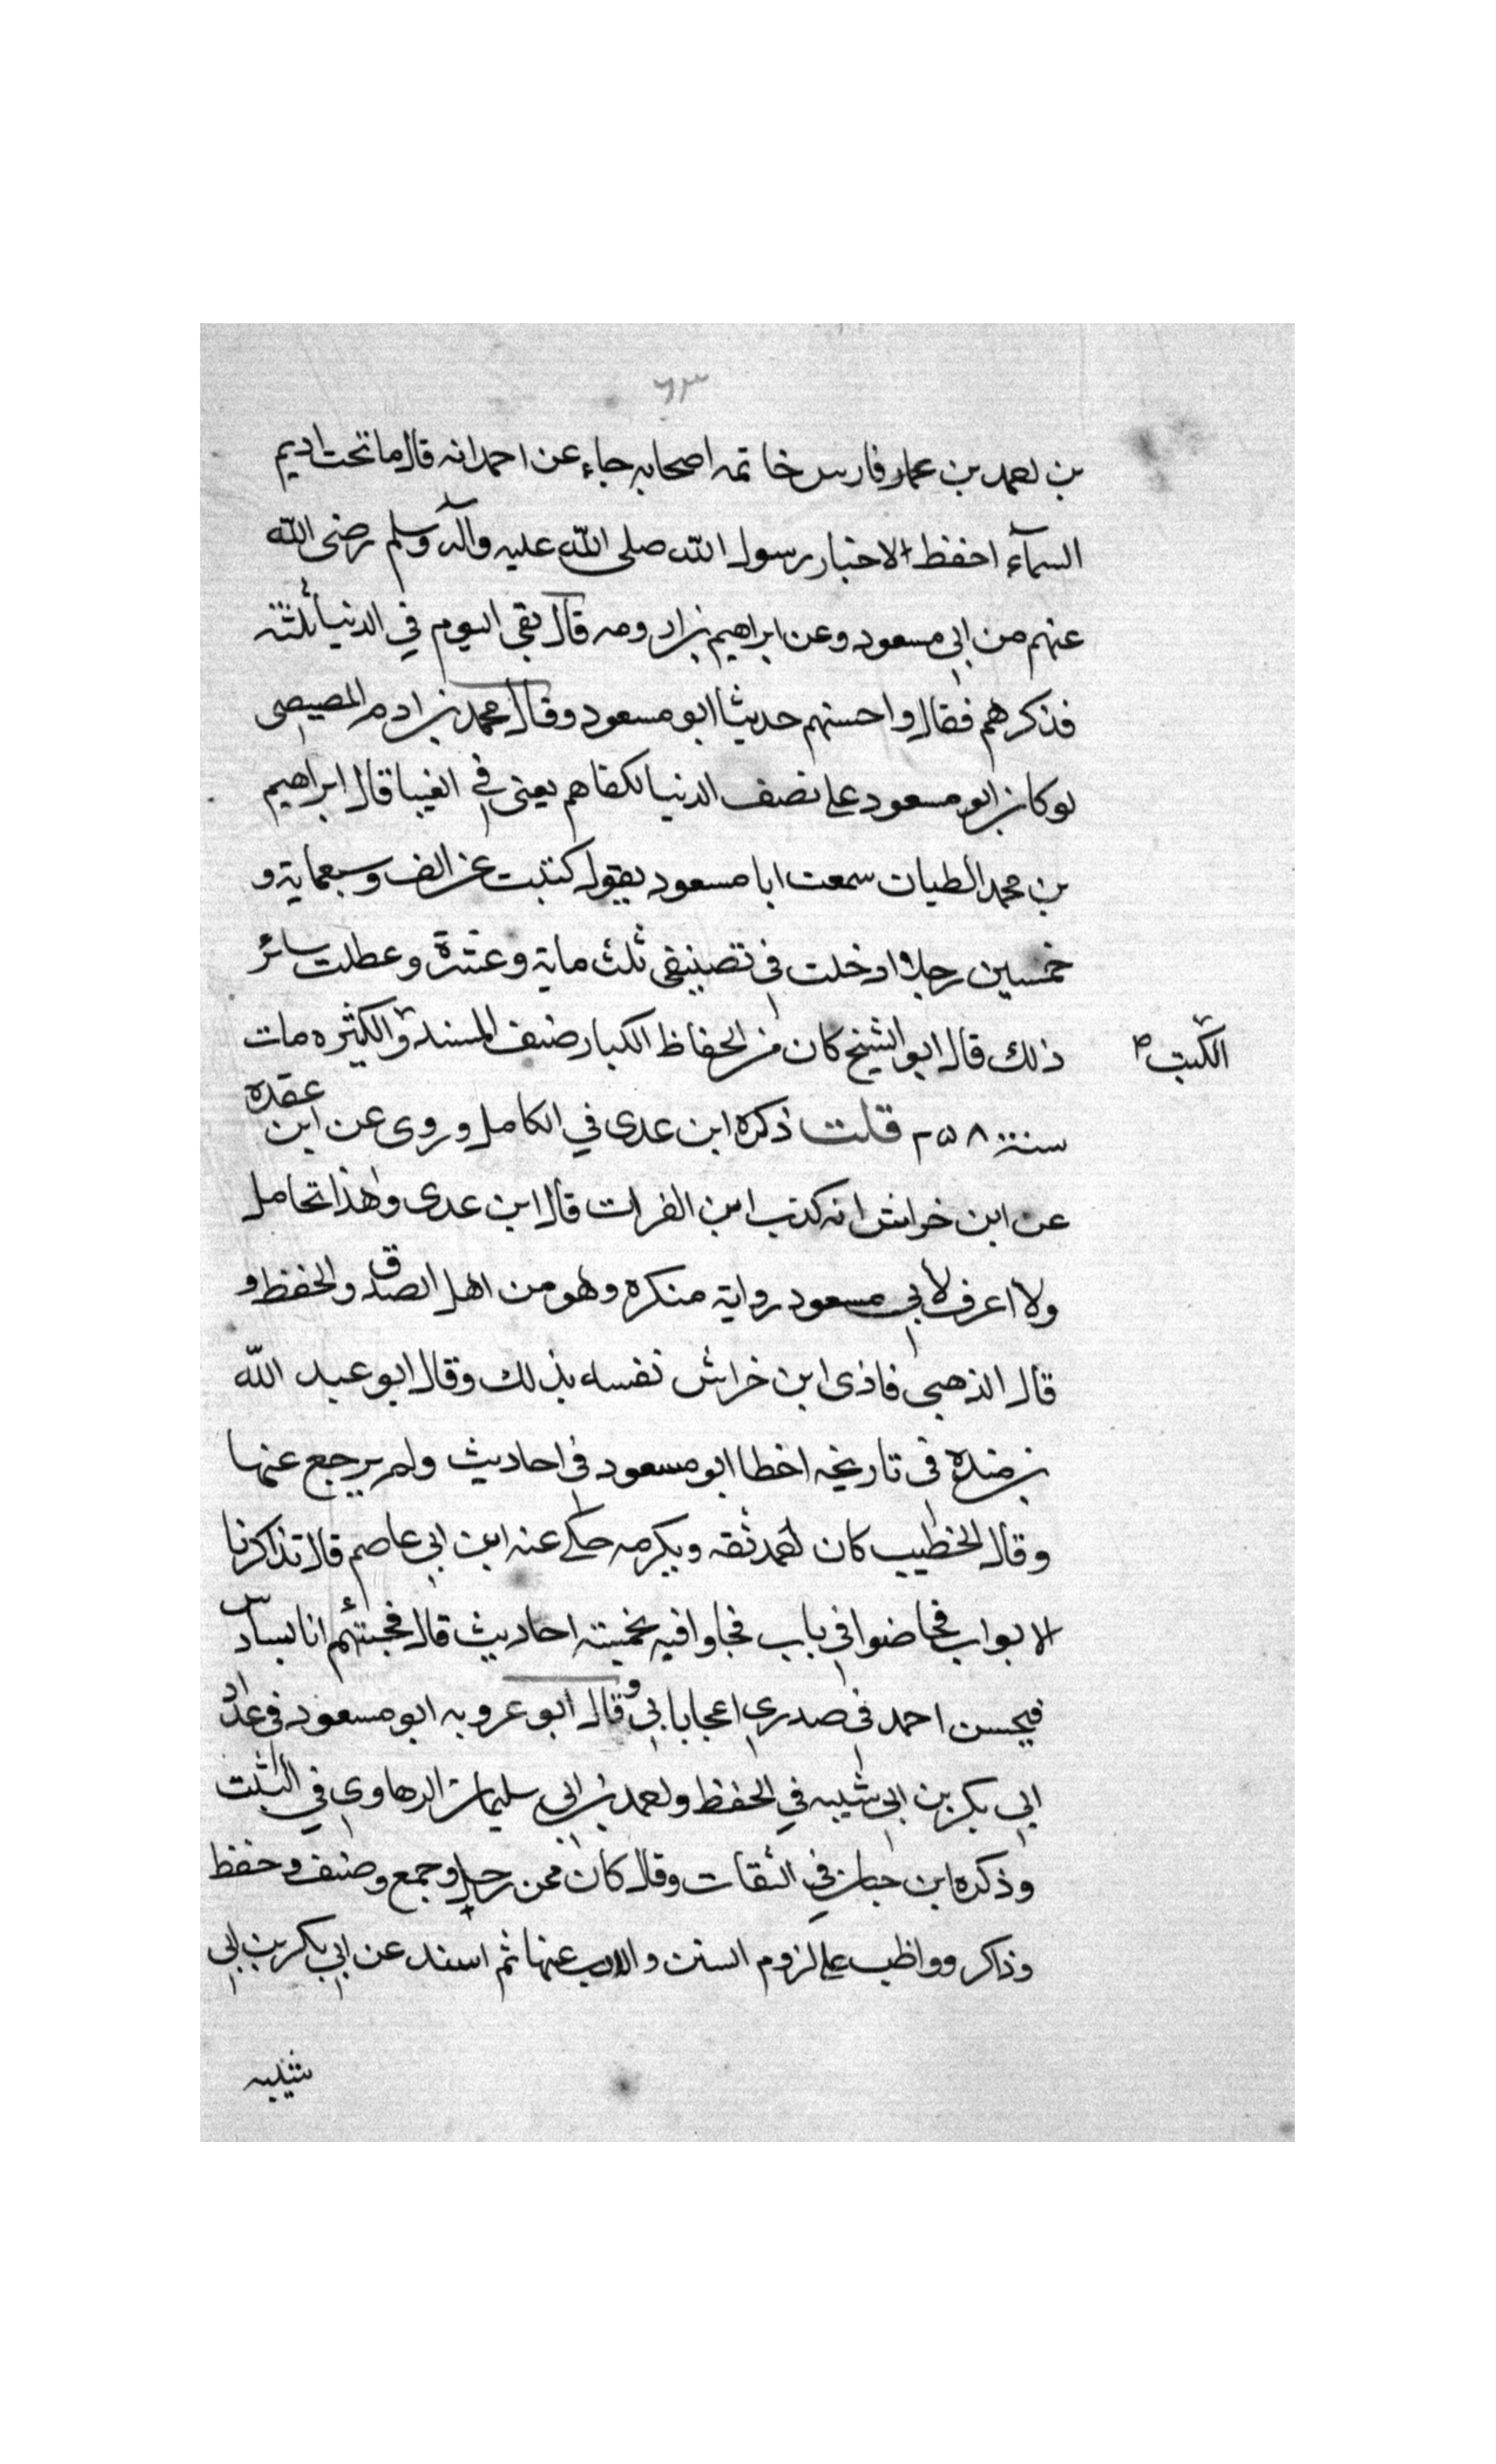 ٦٣
بن احمد بن عمار فارس خاتمه اصحابه جاء عن احمد انه قال ما تحت اديم
السمآء احفظ الاخبار رسول الله صلى الله عليه وآله وسلم رضى الله
عنهم من ابى مسعود وعن ابراهيم بن ارومه قال بقى اليوم في الدنيا ثلثه
فذكرهم فقال واحسنهم حديثا ابو مسعود وقال محمد بن ادم المصيصى
لو كان ابو مسعود على نصف الدنيا لكفاهم يعنى فى الفيبا قال ابراهيم
بن محمد الطيان سمعت ابا مسعود يقول كتبت عن الف وسبعماية و
خمسين رجلا ادخلت فى تصنيفى ثلث ماية وعشرة وعطلت سائر
ذلك قال ابو الشيخ كان من الحفاظ الكبار صنف المسند والكثيره مات
الكتب ص
سنة ٢٥٨ قلت ذكره ابن عدى في الكامل وروى عن ابن عقده
عن ابن خراش انه كذب ابن الفرات قال ابن عدى وهذا تحامل
ولا اعرف لابى مسعود رواية منكره وهو من اهل الصدق والحفظ و
قال الذهبى فاذى ابن خراش نفسه بذلك وقال ابو عبد الله
بن منده فى تاريخه اخطا ابو مسعود فى احاديث ولم يرجع عنها
وقال الخطيب كان احمد ثقه ويكرمه حكى عنه ابن ابى عاصم قال تذاكرنا
الابواب فخاضوا فى باب فجاوا فيه بخمسته احاديث قال فجئتهم انا بسادس
فيحسن احمد فى صدري اعجابا بى وقال ابو عروبه ابو مسعود فى عداد
ابى بكر بن ابى شيبه في الحفظ واحمد بن ابى سليمان الرهاوى في الثبت
وذكره ابن حبان في الثقات وقال كان ممن رحل وجمع وصنف وحفظ
وذاكر وواظب على لزوم السنن و عنها ثم اسند عن ابى بكر بن ابى
شيبه